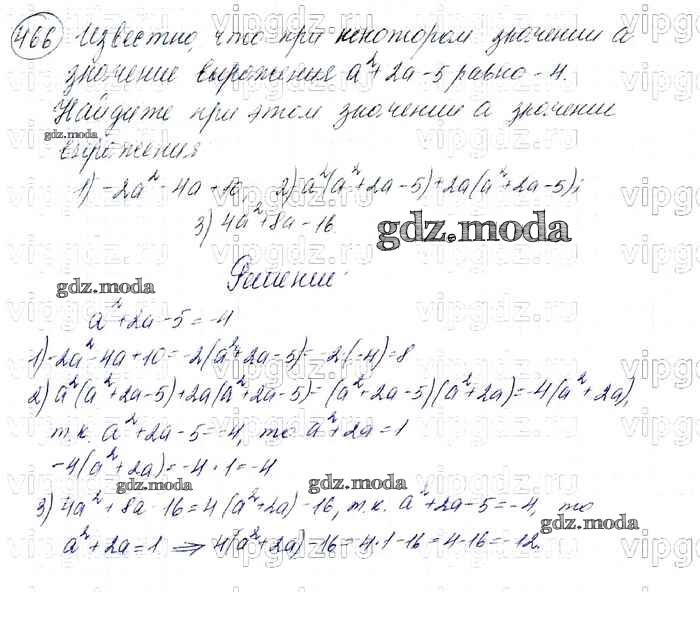 466 Известно, что при некотором значении a
значение выражения a²+2a-5 равно -4.
Найдите при этом значении a значение
gdz.moda
выражения
1) -2a²-4a+10, 2) a²(a²+2a-5)+2a(a²+2a-5);
3) 4a²+8a-16.
gdz.moda
Решение:
gdz.moda
a²+2a-5=-4
1) -2a²-4a+10=-2(a²+2a-5)=-2·(-4)=8
2) a²(a²+2a-5)+2a(a²+2a-5)=(a²+2a-5)(a²+2a)=-4(a²+2a),
т.к. a²+2a-5=-4, то a²+2a=1
-4(a²+2a)=-4·1=-4
gdz.moda gdz.moda
3) 4a²+8a-16=4(a²+2a)-16, т.к. a²+2a-5=-4, то
gdz.moda
a²+2a=1 ⇒ 4(a²+2a)-16=4·1-16=4-16=-12.
vipgdz.ru